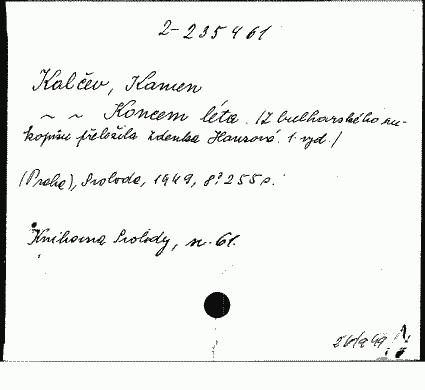 2-235461
Kalčev, Kamen
~ ~ Koncem léta. (Z bulharského ru-
kopisu přeložila Zdenka Hanzová. 1. vyd./
(Praha), Svoboda, 1949, 8° 255 s.
Knihovna Svobody, n. 61.